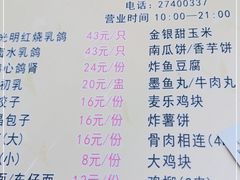 电话：27400337
营业时间 10:00—21:00
光明红烧乳鸽 43元/只 金银甜玉米
卤水乳鸽 43元/只 南瓜饼/香芋饼
心鸽肾 24元/份 炸鱼豆腐
初乳 20元/盅 墨鱼丸/牛肉丸
饺子 16元/份 麦乐鸡块
包子 16元/份 炸薯饼
(大) 16元/份 骨肉相连(4
(小) 8元/份 大鸡块
面/车仔面 12元/份